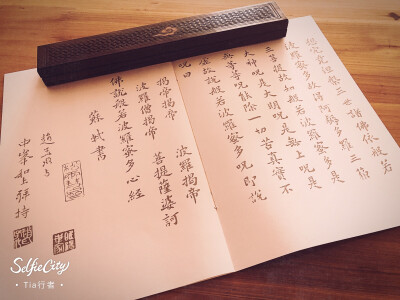 想究竟涅槃三世諸佛依般若
波羅蜜多故得阿耨多羅三藐
三菩提故知般若波羅蜜多是
大神呪是大明呪是無上呪是
無等等呪能除一切苦真實不
虛故說般若波羅蜜多呪即說
呪曰
揭帝揭帝 波羅揭帝
波羅僧揭帝 菩提薩婆訶
佛說般若波羅蜜多心經
蘇軾書
中峯和上
SelfieCity
·Tia行者·